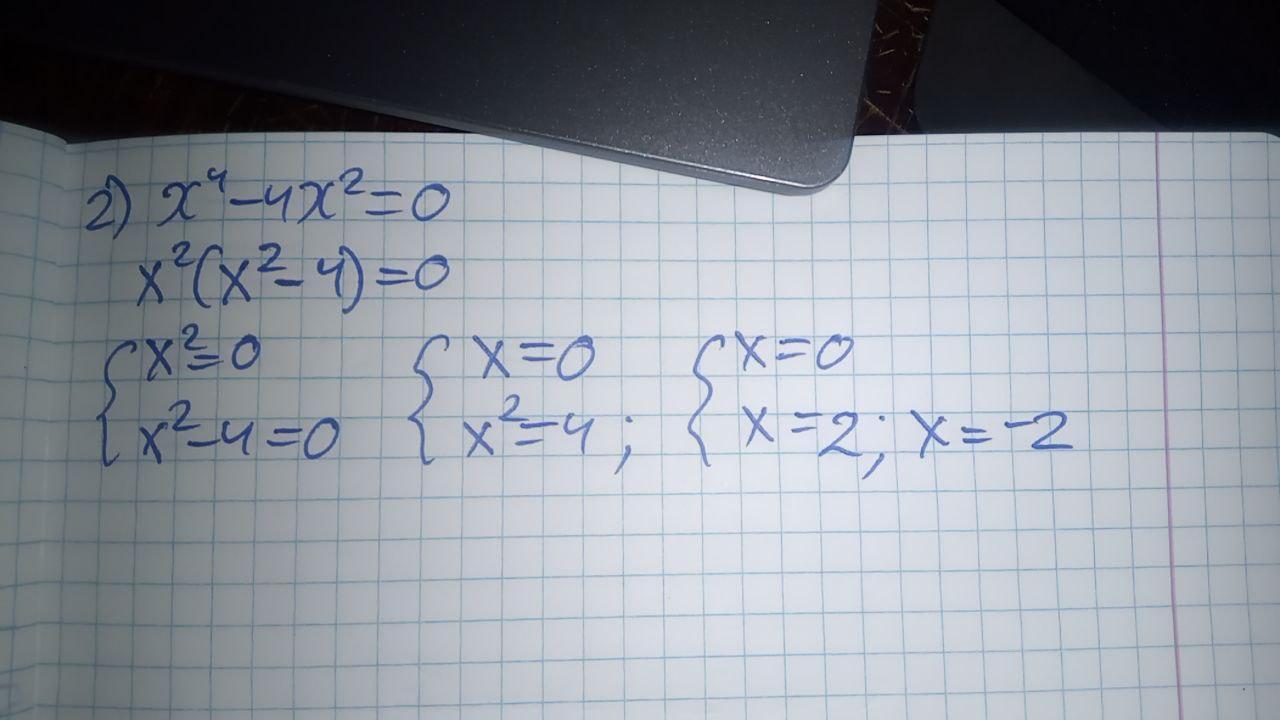 2) x⁴-4x²=0
x²(x²-4)=0
{x²=0 {x=0 {x=0
x²-4=0 x²=4; x=2; x=-2